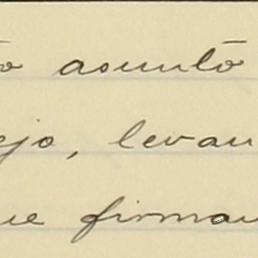 o asunto
ejo, levan
ue firman